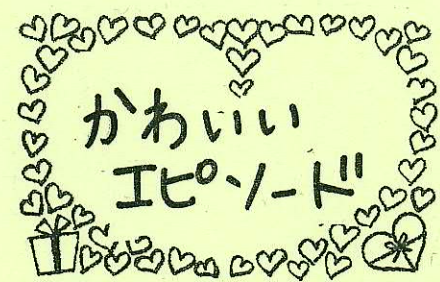 かわいい
エピソード